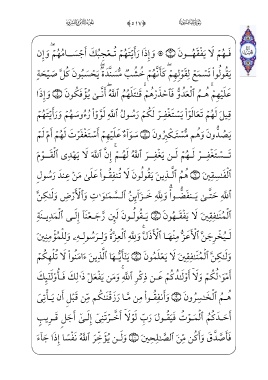 فَهُمْ لَا يَفْقَهُونَ ۝٣ ۞ وَإِذَا رَأَيْتَهُمْ تُعْجِبُكَ أَجْسَامُهُمْ ۖ وَإِن
يَقُولُوا۟ تَسْمَعْ لِقَوْلِهِمْ ۖ كَأَنَّهُمْ خُشُبٌ مُّسَنَّدَةٌ ۖ يَحْسَبُونَ كُلَّ صَيْحَةٍ
عَلَيْهِمْ ۚ هُمُ ٱلْعَدُوُّ فَٱحْذَرْهُمْ ۚ قَـٰتَلَهُمُ ٱللَّهُ ۖ أَنَّىٰ يُؤْفَكُونَ ۝٤ وَإِذَا
قِيلَ لَهُمْ تَعَالَوْا۟ يَسْتَغْفِرْ لَكُمْ رَسُولُ ٱللَّهِ لَوَّوْا۟ رُءُوسَهُمْ وَرَأَيْتَهُمْ
يَصُدُّونَ وَهُم مُّسْتَكْبِرُونَ ۝٥ سَوَآءٌ عَلَيْهِمْ أَسْتَغْفَرْتَ لَهُمْ أَمْ لَمْ
تَسْتَغْفِرْ لَهُمْ لَن يَغْفِرَ ٱللَّهُ لَهُمْ ۚ إِنَّ ٱللَّهَ لَا يَهْدِى ٱلْقَوْمَ
ٱلْفَـٰسِقِينَ ۝٦ هُمُ ٱلَّذِينَ يَقُولُونَ لَا تُنفِقُوا۟ عَلَىٰ مَنْ عِندَ رَسُولِ
ٱللَّهِ حَتَّىٰ يَنفَضُّوا۟ ۗ وَلِلَّهِ خَزَآئِنُ ٱلسَّمَـٰوَٰتِ وَٱلْأَرْضِ وَلَـٰكِنَّ
ٱلْمُنَـٰفِقِينَ لَا يَفْقَهُونَ ۝٧ يَقُولُونَ لَئِن رَّجَعْنَآ إِلَى ٱلْمَدِينَةِ
لَيُخْرِجَنَّ ٱلْأَعَزُّ مِنْهَا ٱلْأَذَلَّ ۚ وَلِلَّهِ ٱلْعِزَّةُ وَلِرَسُولِهِۦ وَلِلْمُؤْمِنِينَ
وَلَـٰكِنَّ ٱلْمُنَـٰفِقِينَ لَا يَعْلَمُونَ ۝٨ يَـٰٓأَيُّهَا ٱلَّذِينَ ءَامَنُوا۟ لَا تُلْهِكُمْ
أَمْوَٰلُكُمْ وَلَآ أَوْلَـٰدُكُمْ عَن ذِكْرِ ٱللَّهِ ۚ وَمَن يَفْعَلْ ذَٰلِكَ فَأُو۟لَـٰٓئِكَ
هُمُ ٱلْخَـٰسِرُونَ ۝٩ وَأَنفِقُوا۟ مِن مَّا رَزَقْنَـٰكُم مِّن قَبْلِ أَن يَأْتِىَ
أَحَدَكُمُ ٱلْمَوْتُ فَيَقُولَ رَبِّ لَوْلَآ أَخَّرْتَنِىٓ إِلَىٰٓ أَجَلٍ قَرِيبٍ
فَأَصَّدَّقَ وَأَكُن مِّنَ ٱلصَّـٰلِحِينَ ۝١٠ وَلَن يُؤَخِّرَ ٱللَّهُ نَفْسًا إِذَا جَآءَ